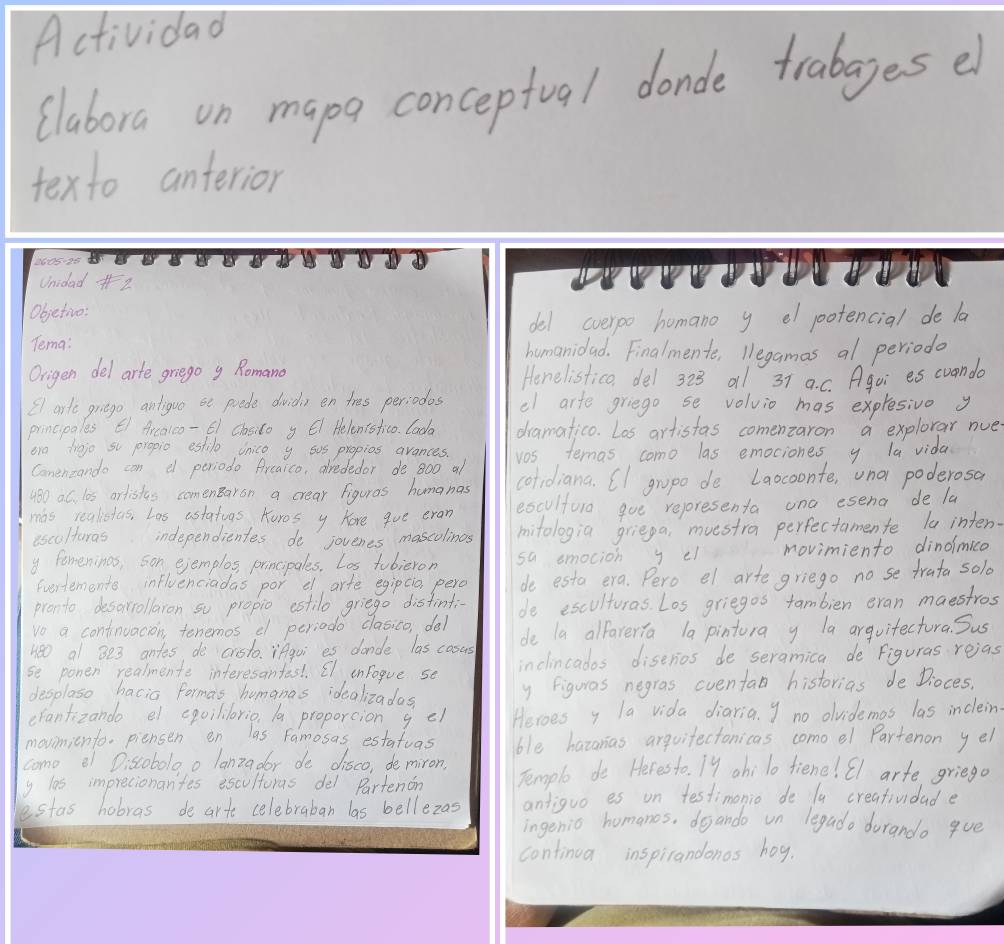 Actividad
Elabora un mapa conceptual donde trabajes el
texto anterior
2605-25
Unidad #2
Objetivo:
Tema:
Origen del arte griego y Romano
El arte griego antiguo se puede dividir en tres periodos
principales El Arcaico - El Clasico y El Helenistico. Cada
era trajo su propio estilo único y sus propios avances.
Comenzando con el periodo Arcaico, alrededor de 800 al
480 a.C. los artistas comenzaron a crear figuras humanas
más realistas. Las estatuas Kuros y Kore que eran
esculturas independientes de jovenes masculinos
y femeninos, son ejemplos principales. Los tubieron
fuertemente influenciadas por el arte egipcio, pero
pronto desarrollaron su propio estilo griego distinti-
vo a continuación, tenemos el periodo clasico, del
480 al 323 antes de cristo. ¡Aqui es donde las cosas
se ponen realmente interesantes!. El enfoque se
desplaso hacia formas humanas idealizadas,
efantizando el equilibrio, la proporcion y el
movimiento. piensen en las famosas estatuas
como el Discobolo o lanzador de disco, de miron.
y las imprecionantes esculturas del Partenón
estas hobras de arte celebraban las bellezas
del cuerpo humano y el potencial de la
humanidad. Finalmente, llegamos al periodo
Henelistico, del 323 al 31 a.c. Aqui es cuando
el arte griego se volvio mas expresivo y
dramatico. Los artistas comenzaron a explorar nue-
vos temas como las emociones y la vida
cotidiana. El grupo de Laocoonte, una poderosa
escultura que representa una esena de la
mitologia griega, muestra perfectamente la inten-
sa emocion y el movimiento dinámico
de esta era. Pero el arte griego no se trata solo
de esculturas. Los griegos tambien eran maestros
de la alfareria la pintura y la arquitectura. Sus
inclincados diseños de seramica de figuras rojas
y figuras negras cuentan historias de Dioces,
Heroes y la vida diaria. y no olvidemos las inclein-
ble hazañas arquitectonicas como el Partenon y el
Templo de Hefesto. ¡Y ahi lo tiene! El arte griego
antiguo es un testimonio de la creatividad e
ingenio humanos. dejando un legado durando que
continua inspirandonos hoy.